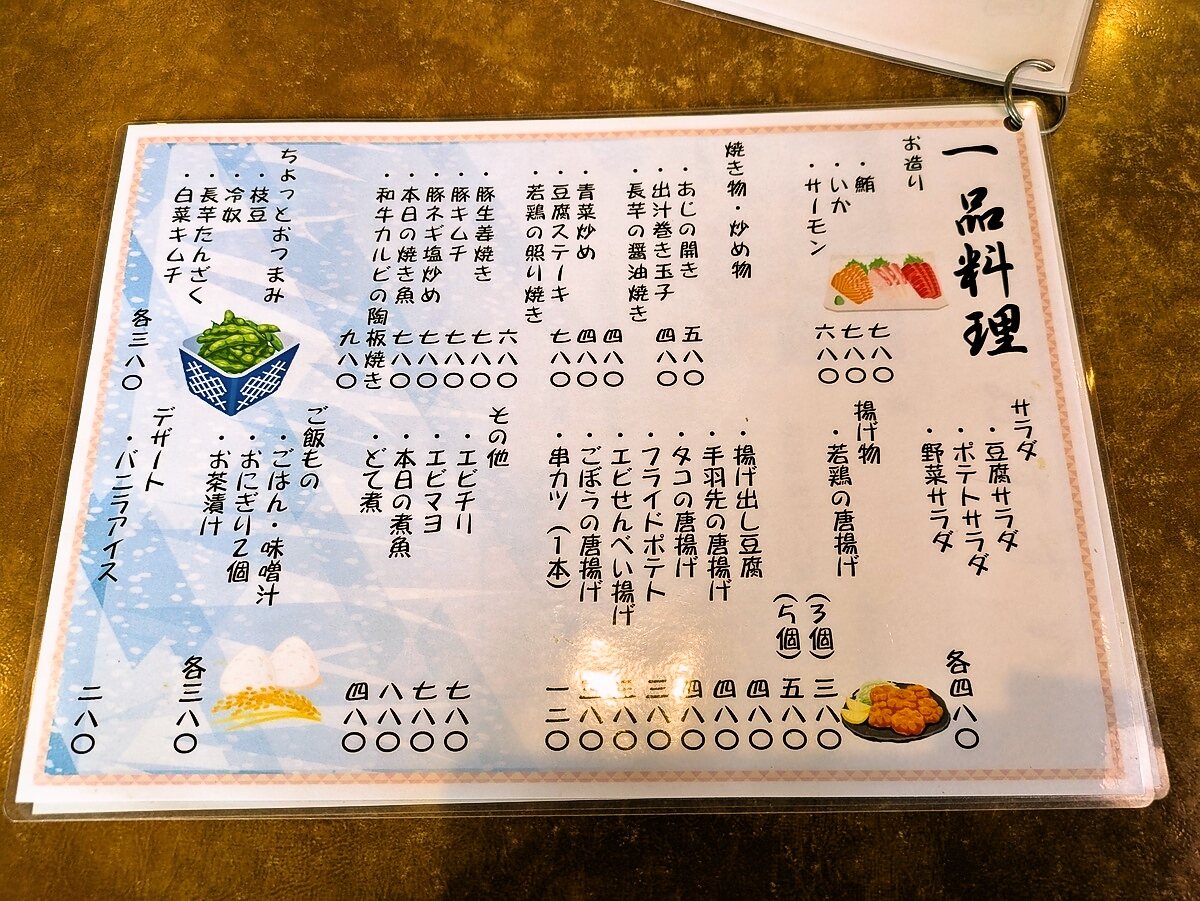 一品料理
お造り
・鮪 七八〇
・いか 七八〇
・サーモン 六八〇
焼き物・炒め物
・あじの開き 五八〇
・出汁巻き玉子 四八〇
・長芋の醤油焼き 四八〇
・青菜炒め 四八〇
・豆腐ステーキ 七八〇
・若鶏の照り焼き 六八〇
・豚生姜焼き 七八〇
・豚キムチ 七八〇
・豚ネギ塩炒め 七八〇
・本日の焼き魚 七八〇
・和牛カルビの陶板焼き 九八〇
ちょっとおつまみ
・枝豆
・冷奴
・長芋たんざく
・白菜キムチ
各三八〇
サラダ
・豆腐サラダ
・ポテトサラダ
・野菜サラダ
各四八〇
揚げ物
・若鶏の唐揚げ (3個) 三八〇
(5個) 五八〇
・揚げ出し豆腐 四八〇
・手羽先の唐揚げ 四八〇
・タコの唐揚げ 四八〇
・フライドポテト 三八〇
・エビせんべい揚げ 三八〇
・ごぼうの唐揚げ 三八〇
・串カツ (1本) 一二〇
その他
・エビチリ 七八〇
・エビマヨ 七八〇
・本日の煮魚 八八〇
・どて煮 四八〇
ご飯もの
・ごはん・味噌汁
・おにぎり2個
・お茶漬け
各三八〇
デザート
・バニラアイス 二八〇